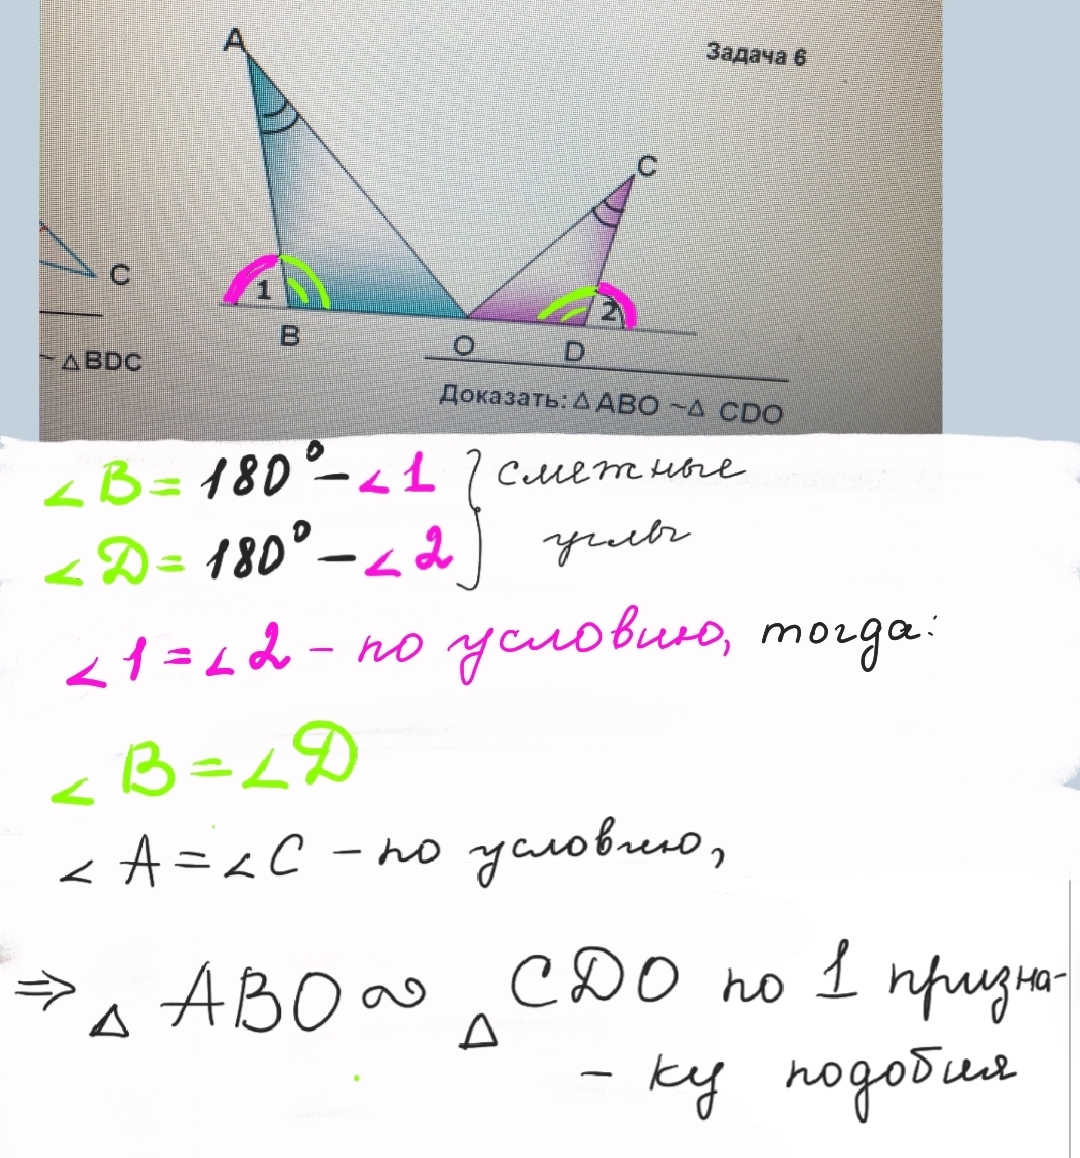 A
Задача 6
C
C
1
2
B
O
D
~ △BDC
Доказать: △ ABO ~△ CDO
∠B = 180° - ∠1 } смежные
∠D = 180° - ∠2 } углы
∠1 = ∠2 - по условию, тогда:
∠B = ∠D
∠A = ∠C - по условию,
⇒ △ ABO ∾ △ CDO по 1 призна-
- ку подобия